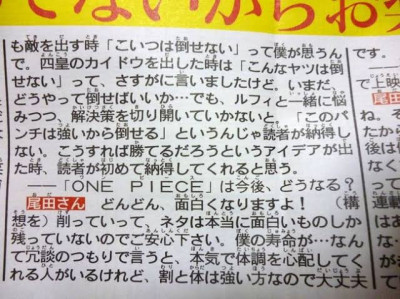 も敵を出す時「こいつは倒せない」って僕が思うん
で。四皇のカイドウを出した時は「こんなヤツは倒
せない」って、さすがに言いましたけど。いまだ、
どうやって倒せばいいか…でも、ルフィと一緒に悩
みつつ、解決策を切り開いていかないと「このパ
ンチは強いから倒せる」というんじゃ読者が納得し
ない。こうすれば勝てるだろうというアイデアが出
た時、読者が初めて納得してくれると思う。
―「ONE PIECE」は今後、どうなる?
尾田さん どんどん、面白くなりますよ!(構
想を)削っていって、ネタは本当に面白いものしか
残っていないのでご安心下さい。僕の寿命が…なん
て冗談のつもりで言うと、本気で体調を心配してく
れる人がいるけれど、割と体は強い方なので大丈夫
です。
―
で上映
尾田
ね。そ
たから
後は個
が出
連載
尾田